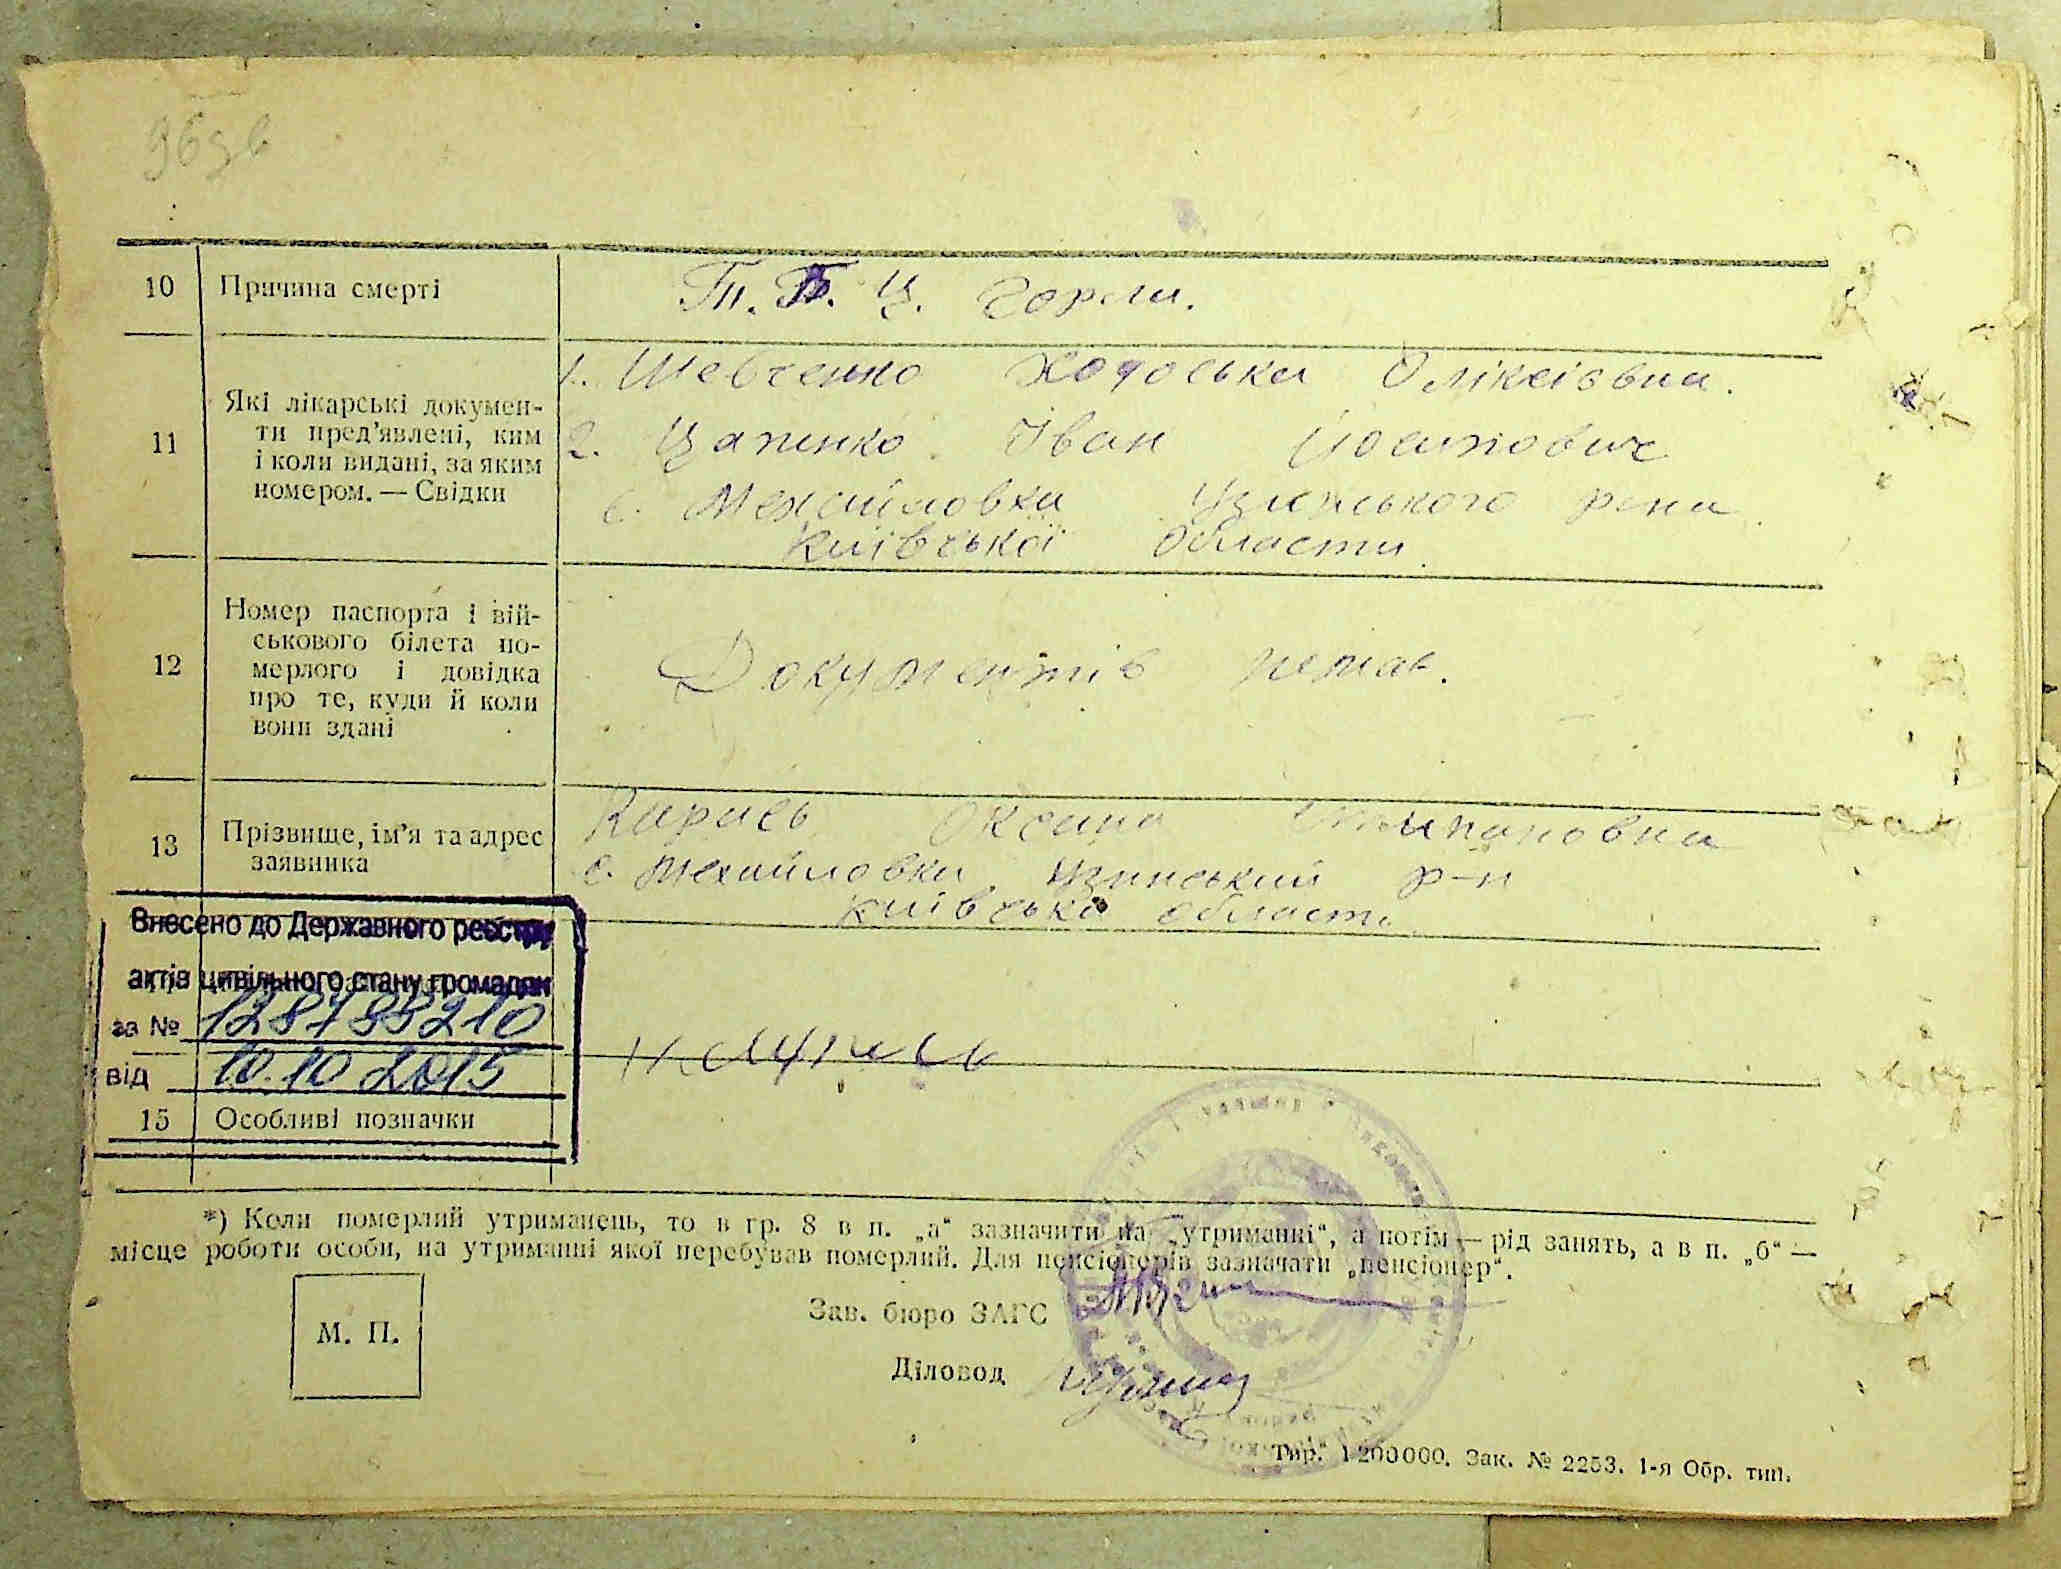 96зв
10 Причина смерті Т. Б. Ц. горла.
11 Які лікарські докумен-
ти пред'явлені, ким
і коли видані, за яким
номером. — Свідки
1. Шевченко Ходоська Оліксіівна.
2. Цапенко Іван Йосипович
с. Мехайловка Узинського рона
Київської области
12 Номер паспорта і вій-
ськового білета по-
мерлого і довідка
про те, куди й коли
вони здані
Документів немає.
13 Прізвище, ім'я та адрес
заявника
Карась Оксана Степановна
с. Мехайловка Узинський р-н
Київська область
Внесено до Державного реєстру
актів цивільного стану громадян
за № 128788210
від 10.10 2015
15 Особливі позначки
*) Коли померлий утриманець, то в гр. 8 в п. „а“ зазначити на „утриманні“, а потім — рід занять, а в п. „б“ —
місце роботи особи, на утриманні якої перебував померлий. Для пенсіонерів зазначати „пенсіонер“.
М. П.
Зав. бюро ЗАГС
Діловод
Тир. 1200000. Зак. № 2253. 1-я Обр. тип.